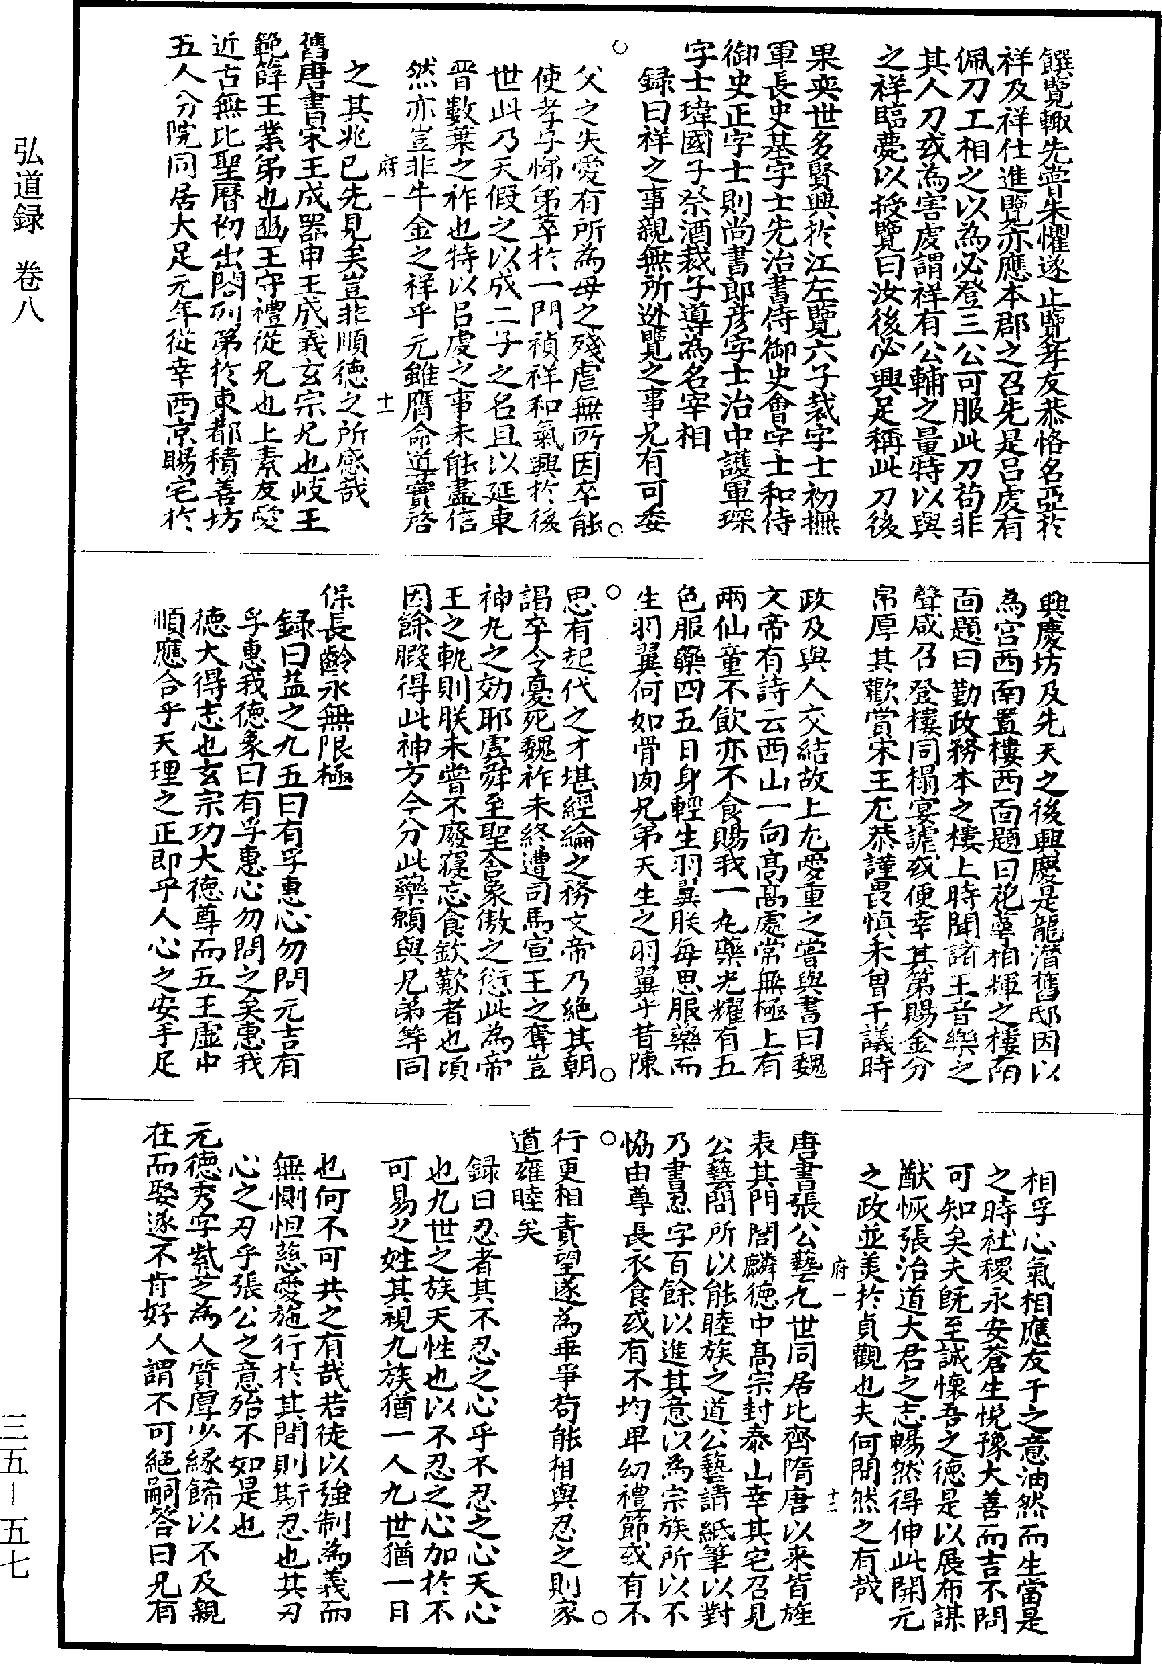 弘道録 卷八
三五—五七
饌覽輙先嘗朱懼遂止覽孝友恭恪名亞於
祥及祥仕進覽亦應本郡之召先是吕虔有
佩刀工相之以為必登三公可服此刀苟非
其人刀或為害虔謂祥有公輔之量特以與
之祥臨薨以授覽曰汝後必興足稱此刀後
果奕世多賢興於江左覽六子裁字士初撫
軍長史基字士先治書侍御史會字士和侍
御史正字士則尚書郎彦字士治中護軍琛
字士瑋國子祭酒裁子導為名宰相
録曰祥之事親無所逃覽之事兄有可委
○
父之失愛有所為母之殘虐無所因卒能
使孝子悌弟萃於一門禎祥和氣興於後
世此乃天假之以成二子之名且以延東
晉數葉之祚也特以吕虔之事未能盡信
然亦豈非牛金之祥乎元雖膺命導實啓
○
府一
十一
之其兆已先見矣豈非順德之所感哉
舊唐書宋王成器申王成義玄宗兄也岐王
範薛王業弟也豳王守禮從兄也上素友愛
近古無比聖曆初出閤列第於東都積善坊
五人分院同居大足元年從幸西京賜宅於
興慶坊及先天之後興慶是龍潛舊邸因以
為宫西南置樓西面題曰花萼相輝之樓南
面題曰勤政務本之樓上時聞諸王音樂之
聲咸召登樓同榻宴謔或便幸其第賜金分
帛厚其歡賞宋王尤恭謹畏慎未曽干議時
政及與人交結故上尤愛重之嘗與書曰魏
文帝有詩云西山一何高高處常無極上有
兩仙童不飲亦不食賜我一丸藥光耀有五
色服藥四五日身輕生羽翼朕每思服藥而
生羽翼何如骨肉兄弟天生之羽翼乎昔陳
○
思有起代之才堪經綸之務文帝乃絶其朝
謁卒令憂死魏祚未終遭司馬宣王之奪豈
神丸之効耶虞舜至聖舍象傲之愆此為帝
王之軌則朕未嘗不廢寢忘食欽歎者也頃
因餘暇得此神方今分此藥願與兄弟等同
○
保長齡永無限極
録曰益之九五曰有孚惠心勿問元吉有
孚惠我德象曰有孚惠心勿問之矣惠我
德大得志也玄宗功大德尊而五王虚中
順應合乎天理之正即乎人心之安手足
相孚心氣相應友于之意油然而生當是
之時社稷永安蒼生悦豫大善而吉不問
可知矣夫旣至誠懷吾之德是以展布謀
猷恢張治道大君之志暢然得伸此開元
之政並美於貞觀也夫何間然之有哉
府一
十二
唐書張公藝九世同居北齊隋唐以來皆旌
表其門閭麟德中高宗封泰山幸其宅召見
公藝問所以能睦族之道公藝請紙筆以對
乃書忍字百餘以進其意以為宗族所以不
恊由尊長衣食或有不均卑幼禮節或有不
○
行更相責望遂為乖爭苟能相與忍之則家
道雍睦矣
録曰忍者其不忍之心乎不忍之心天心
也九世之族天性也以不忍之心加於不
可易之姓其視九族猶一人九世猶一日
○
也何不可共之有哉若徒以強制為義而
無惻怛慈愛施行於其間則斯忍也其刃
心之刃乎張公之意殆不如是也
元德秀字紫芝為人質厚少縁飾以不及親
在而娶遂不肯好人謂不可絶嗣答曰兄有